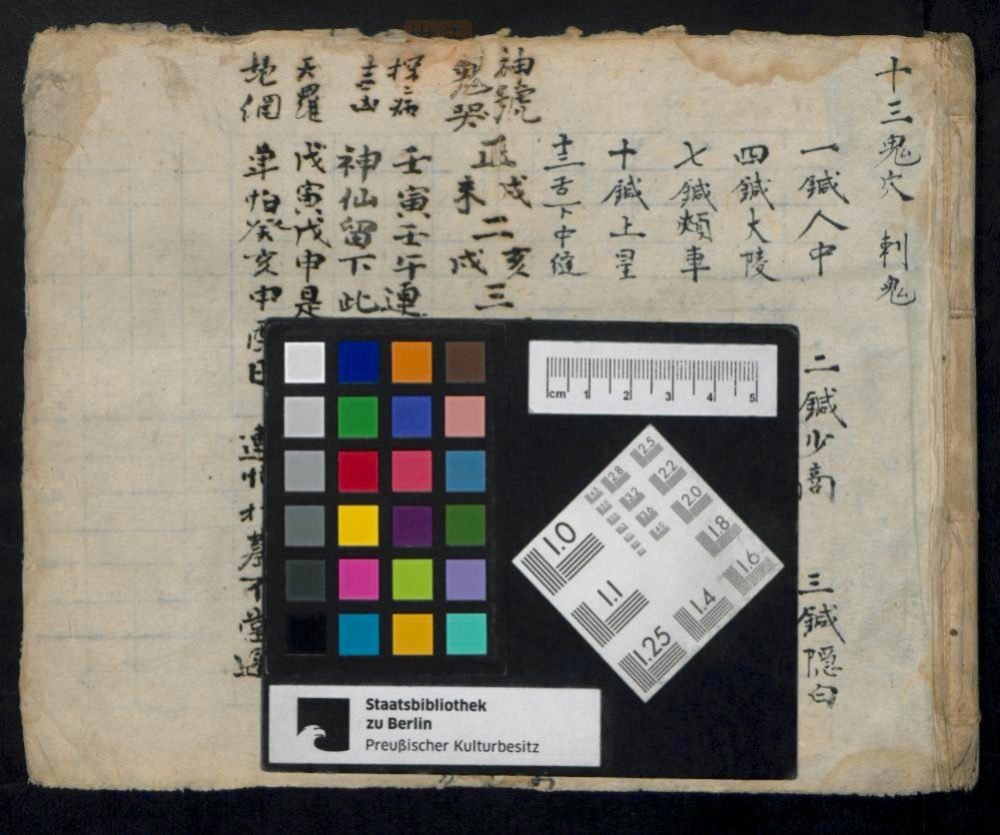 十三鬼穴 刺鬼
一鍼人中 二鍼少商 三鍼隠白
四鍼大陵
七鍼頰車
十鍼上星
十三舌下中縫
神號 正戌 二亥 三
鬼哭 未 戌
探病 壬寅壬午連
神仙留下此
天羅 戊寅戊申是
地網 單怕癸亥申酉日
cm 1 2 3 4 5
2.5
2.8 2.2
3.2 2.0
3.6 1.8
4.0 1.6
1.0
1.1 1.4
1.25
Staatsbibliothek
zu Berlin
Preußischer Kulturbesitz